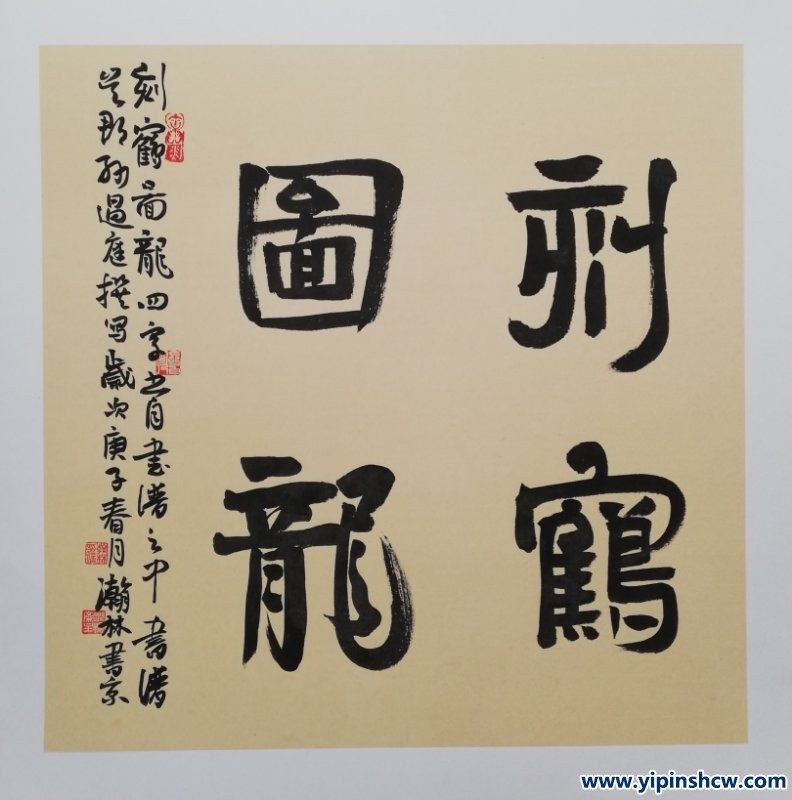 刻鶴
圖龍
刻鶴圖龍四字出自書譜之中書譜
吴郡孙過庭撰写歲次庚子春月瀚林書京
www.yipinshcw.com